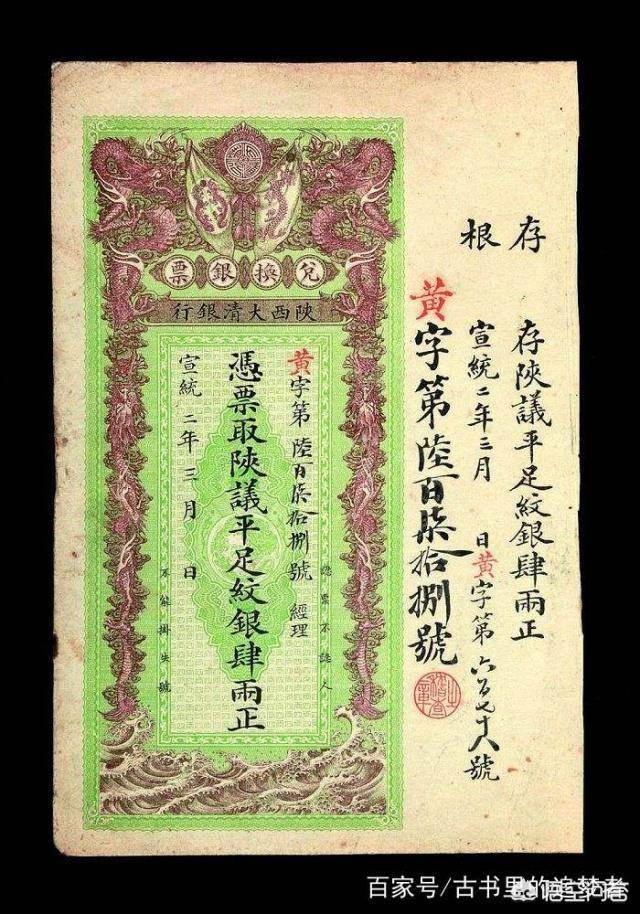 存根
存陝議平足紋銀肆兩正
宣統二年三月 日黃字第六百七十八號
黃字第陸百柒拾捌號
兌換銀票
陝西大清銀行
黃字第陸百柒拾捌號 經理
認票不認人
憑票取陝議平足紋銀肆兩正
宣統二年三月 日
不能掛失號
百家号/古书里的追梦者
悟空问答